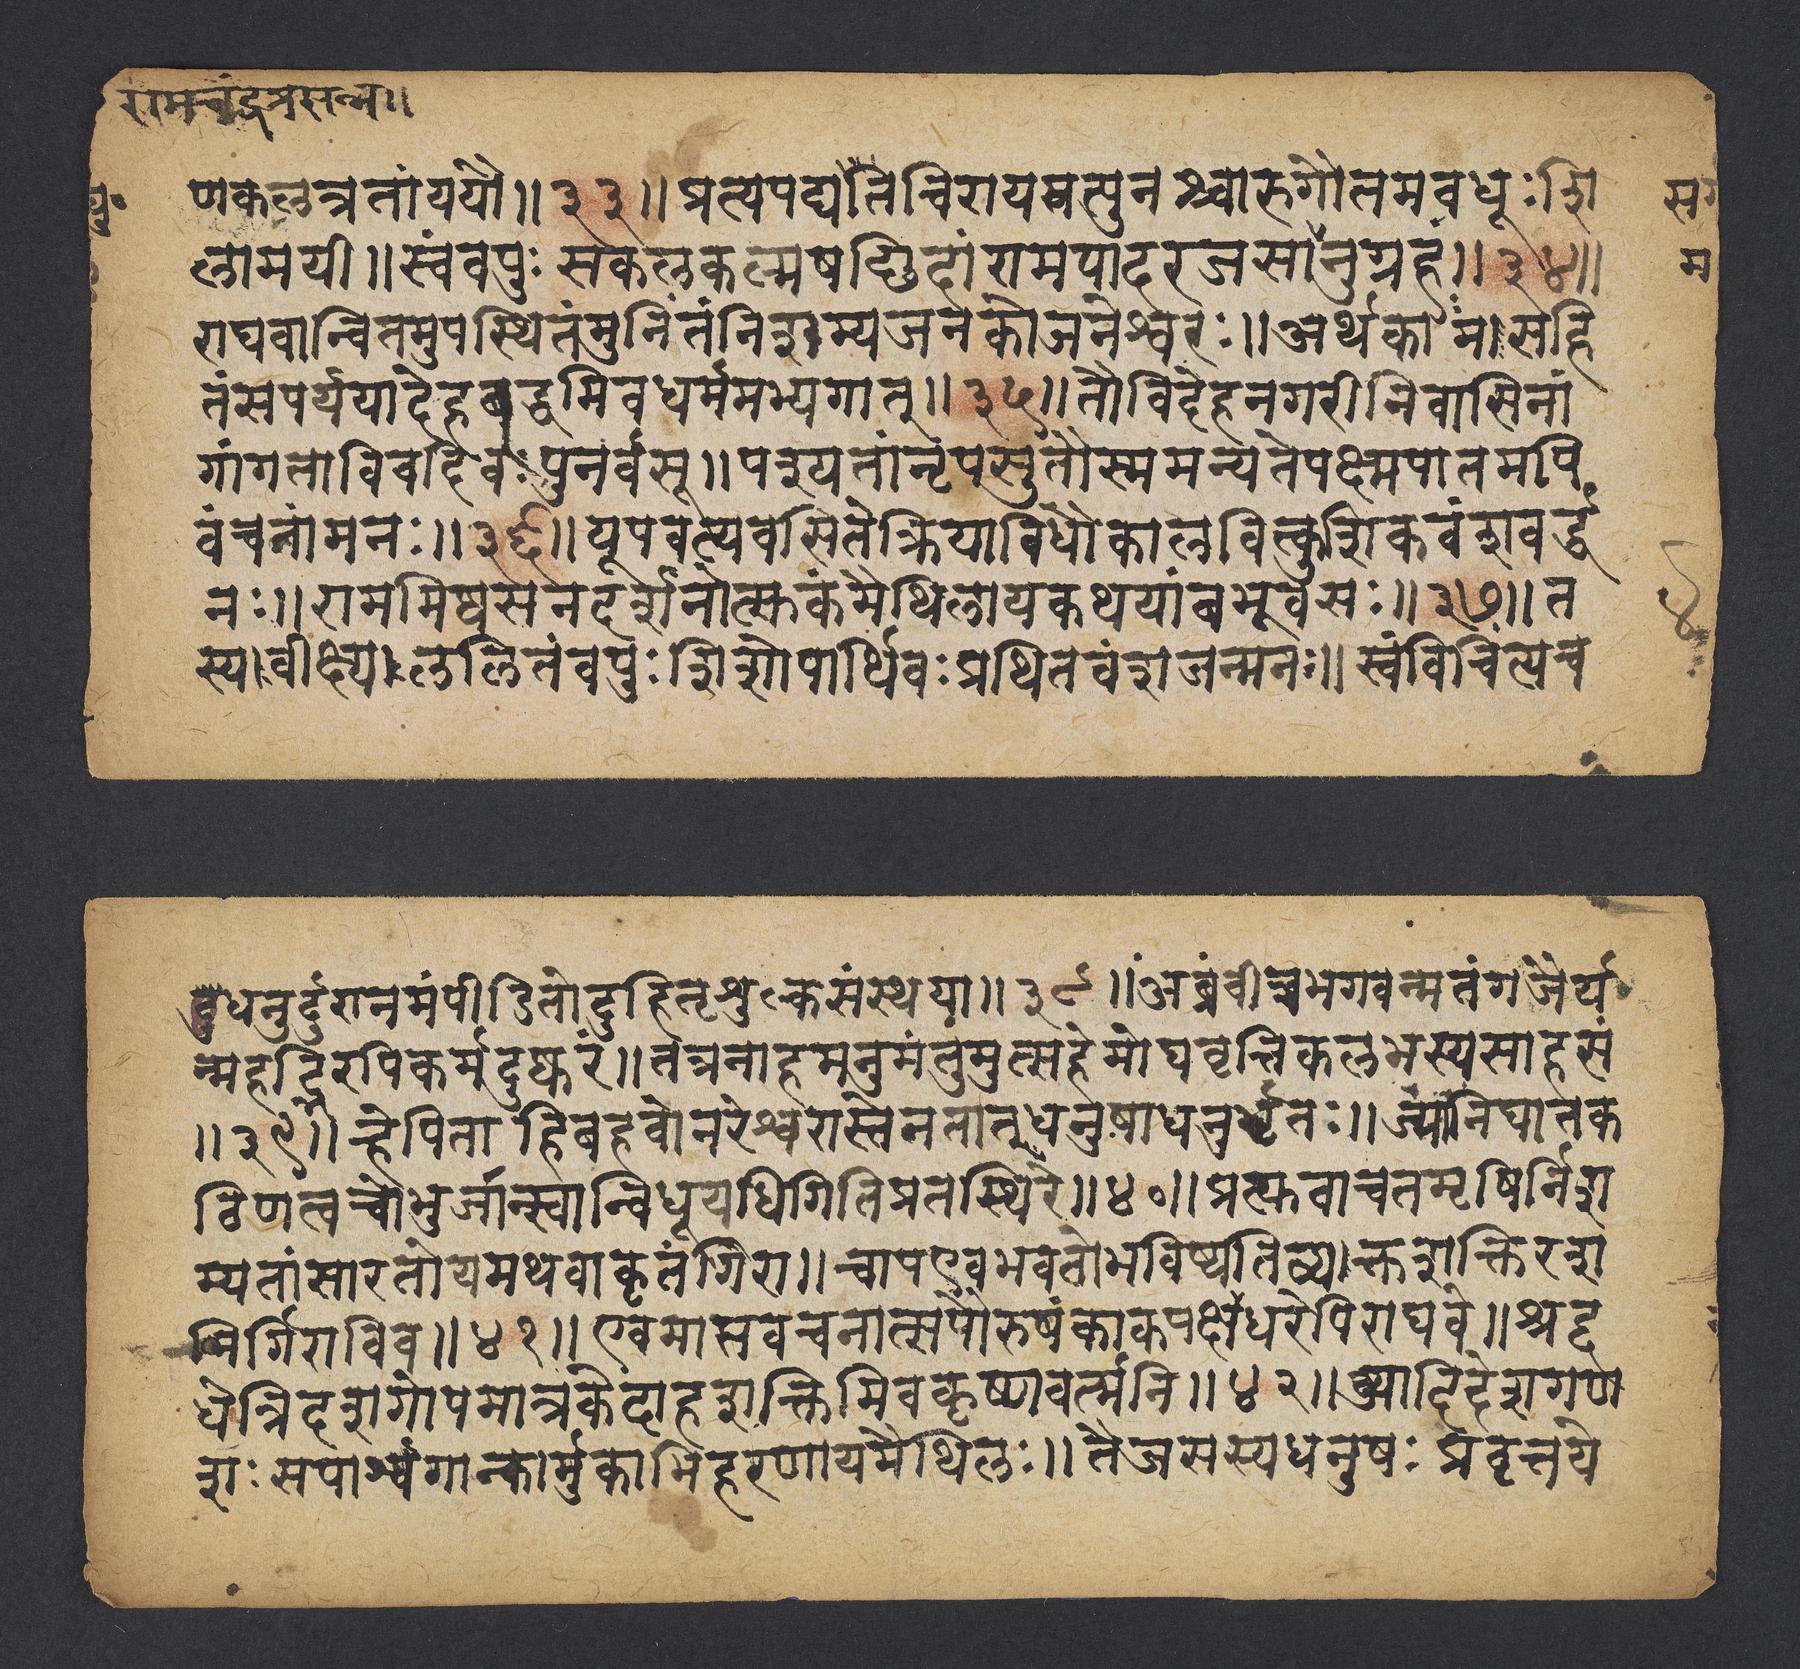 रामचंद्रप्रसन्न॥
णकलत्रतांययौ॥३३॥प्रत्यपद्यतचिराययत्पुनश्चारुगौतमवधूःशि
लामयी॥स्वंवपुःसकलकल्मषच्छिदांरामपादरजसांनुग्रहं॥३४॥
राघवान्वितमुपस्थितंमुनिंतंनिशम्यजनकोजनेश्वरः॥अर्थकामसहि
तंसपर्ययादेहबद्धमिवधर्ममभ्यगात्॥३५॥तौविदेहनगरीनिवासिनां
गांगताविवदिवःपुनर्वसू॥पश्यतांनृपसुतौस्ममन्यतेपक्ष्मपातमपि
वंचनांमनः॥३६॥यूपवत्यवसितेक्रियाविधौकालवित्कुशिकवंशवर्द्ध
नः॥राममिष्वसनदर्शनोत्सुकंमैथिलायकथयांबभूवसः॥३७॥त
स्यवीक्ष्यललितंवपुःशिशोपार्थिवःप्रथितवंशजन्मनः॥स्वंविचिंत्यच
सर्ग
म
वुधनुर्दुरानमंपीडितोदुहितृशुल्कसंस्थया॥३८॥अब्रवीच्चभगवन्मतंगजैर्य
न्महद्भिरपिकर्मदुष्करं॥तत्रनाहमनुमंतुमुत्सहेमोघवृत्तिकलभस्यसाहसं
॥३९॥ह्रेपिताहिबहवोनरेश्वरास्तेनतात्धनुषाधनुर्भृतः॥ज्यानिघातक
ठिणत्वचोभुजान्स्वान्विधूयधिगितिप्रतस्थिरे॥४०॥प्रत्युवाचतमृषिर्निश
म्यतांसारतोयमथवाकृतंगिरा॥चापएवभवतोभविष्यतिव्यक्तशक्तिरश
निर्गिराविव॥४१॥एवमाप्तवचनात्सपौरुषंकाकपक्षधरेपिराघवे॥श्रद्द
धेत्रिदशगोपमात्रकेदाहशक्तिमिवकृष्णवर्त्मनि॥४२॥व्यादिदेशगण
शःसपार्श्वगान्कार्मुकाभिहरणायमैथिलः॥तैजसस्यधनुषःप्रवृत्तये